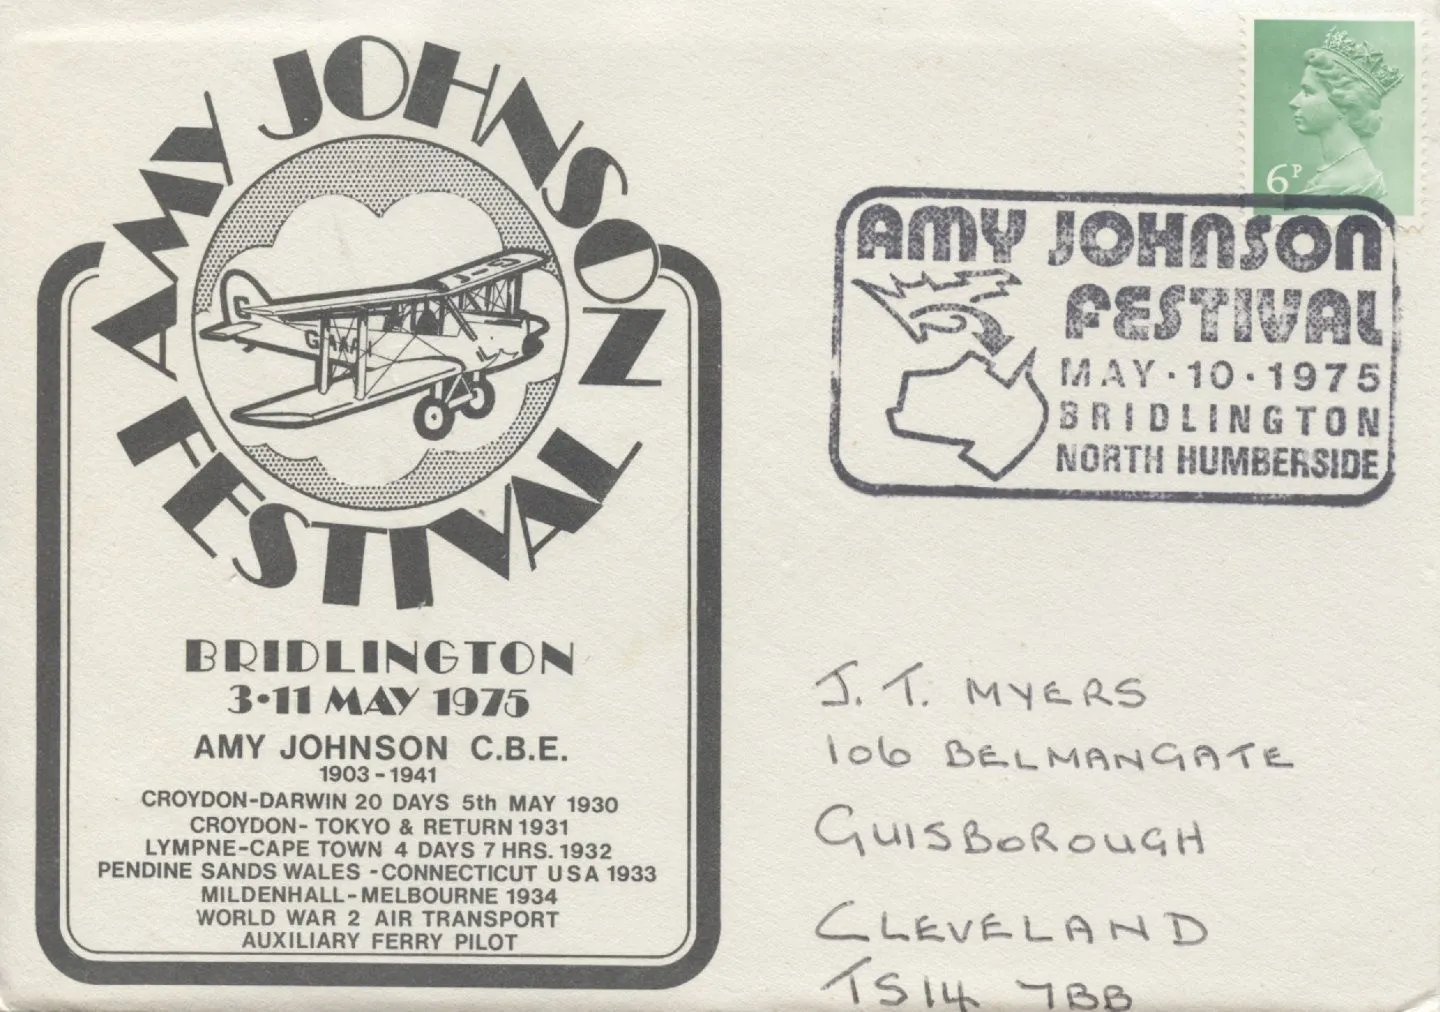 AMY JOHNSON
FESTIVAL
BRIDLINGTON
3·11 MAY 1975
AMY JOHNSON C.B.E.
1903-1941
CROYDON-DARWIN 20 DAYS 5th MAY 1930
CROYDON- TOKYO & RETURN 1931
LYMPNE-CAPE TOWN 4 DAYS 7 HRS. 1932
PENDINE SANDS WALES -CONNECTICUT U S A 1933
MILDENHALL-MELBOURNE 1934
WORLD WAR 2 AIR TRANSPORT
AUXILIARY FERRY PILOT
6P
AMY JOHNSON
FESTIVAL
MAY·10·1975
BRIDLINGTON
NORTH HUMBERSIDE
J. T. MYERS
106 BELMANGATE
GUISBOROUGH
CLEVELAND
TS14 7BB